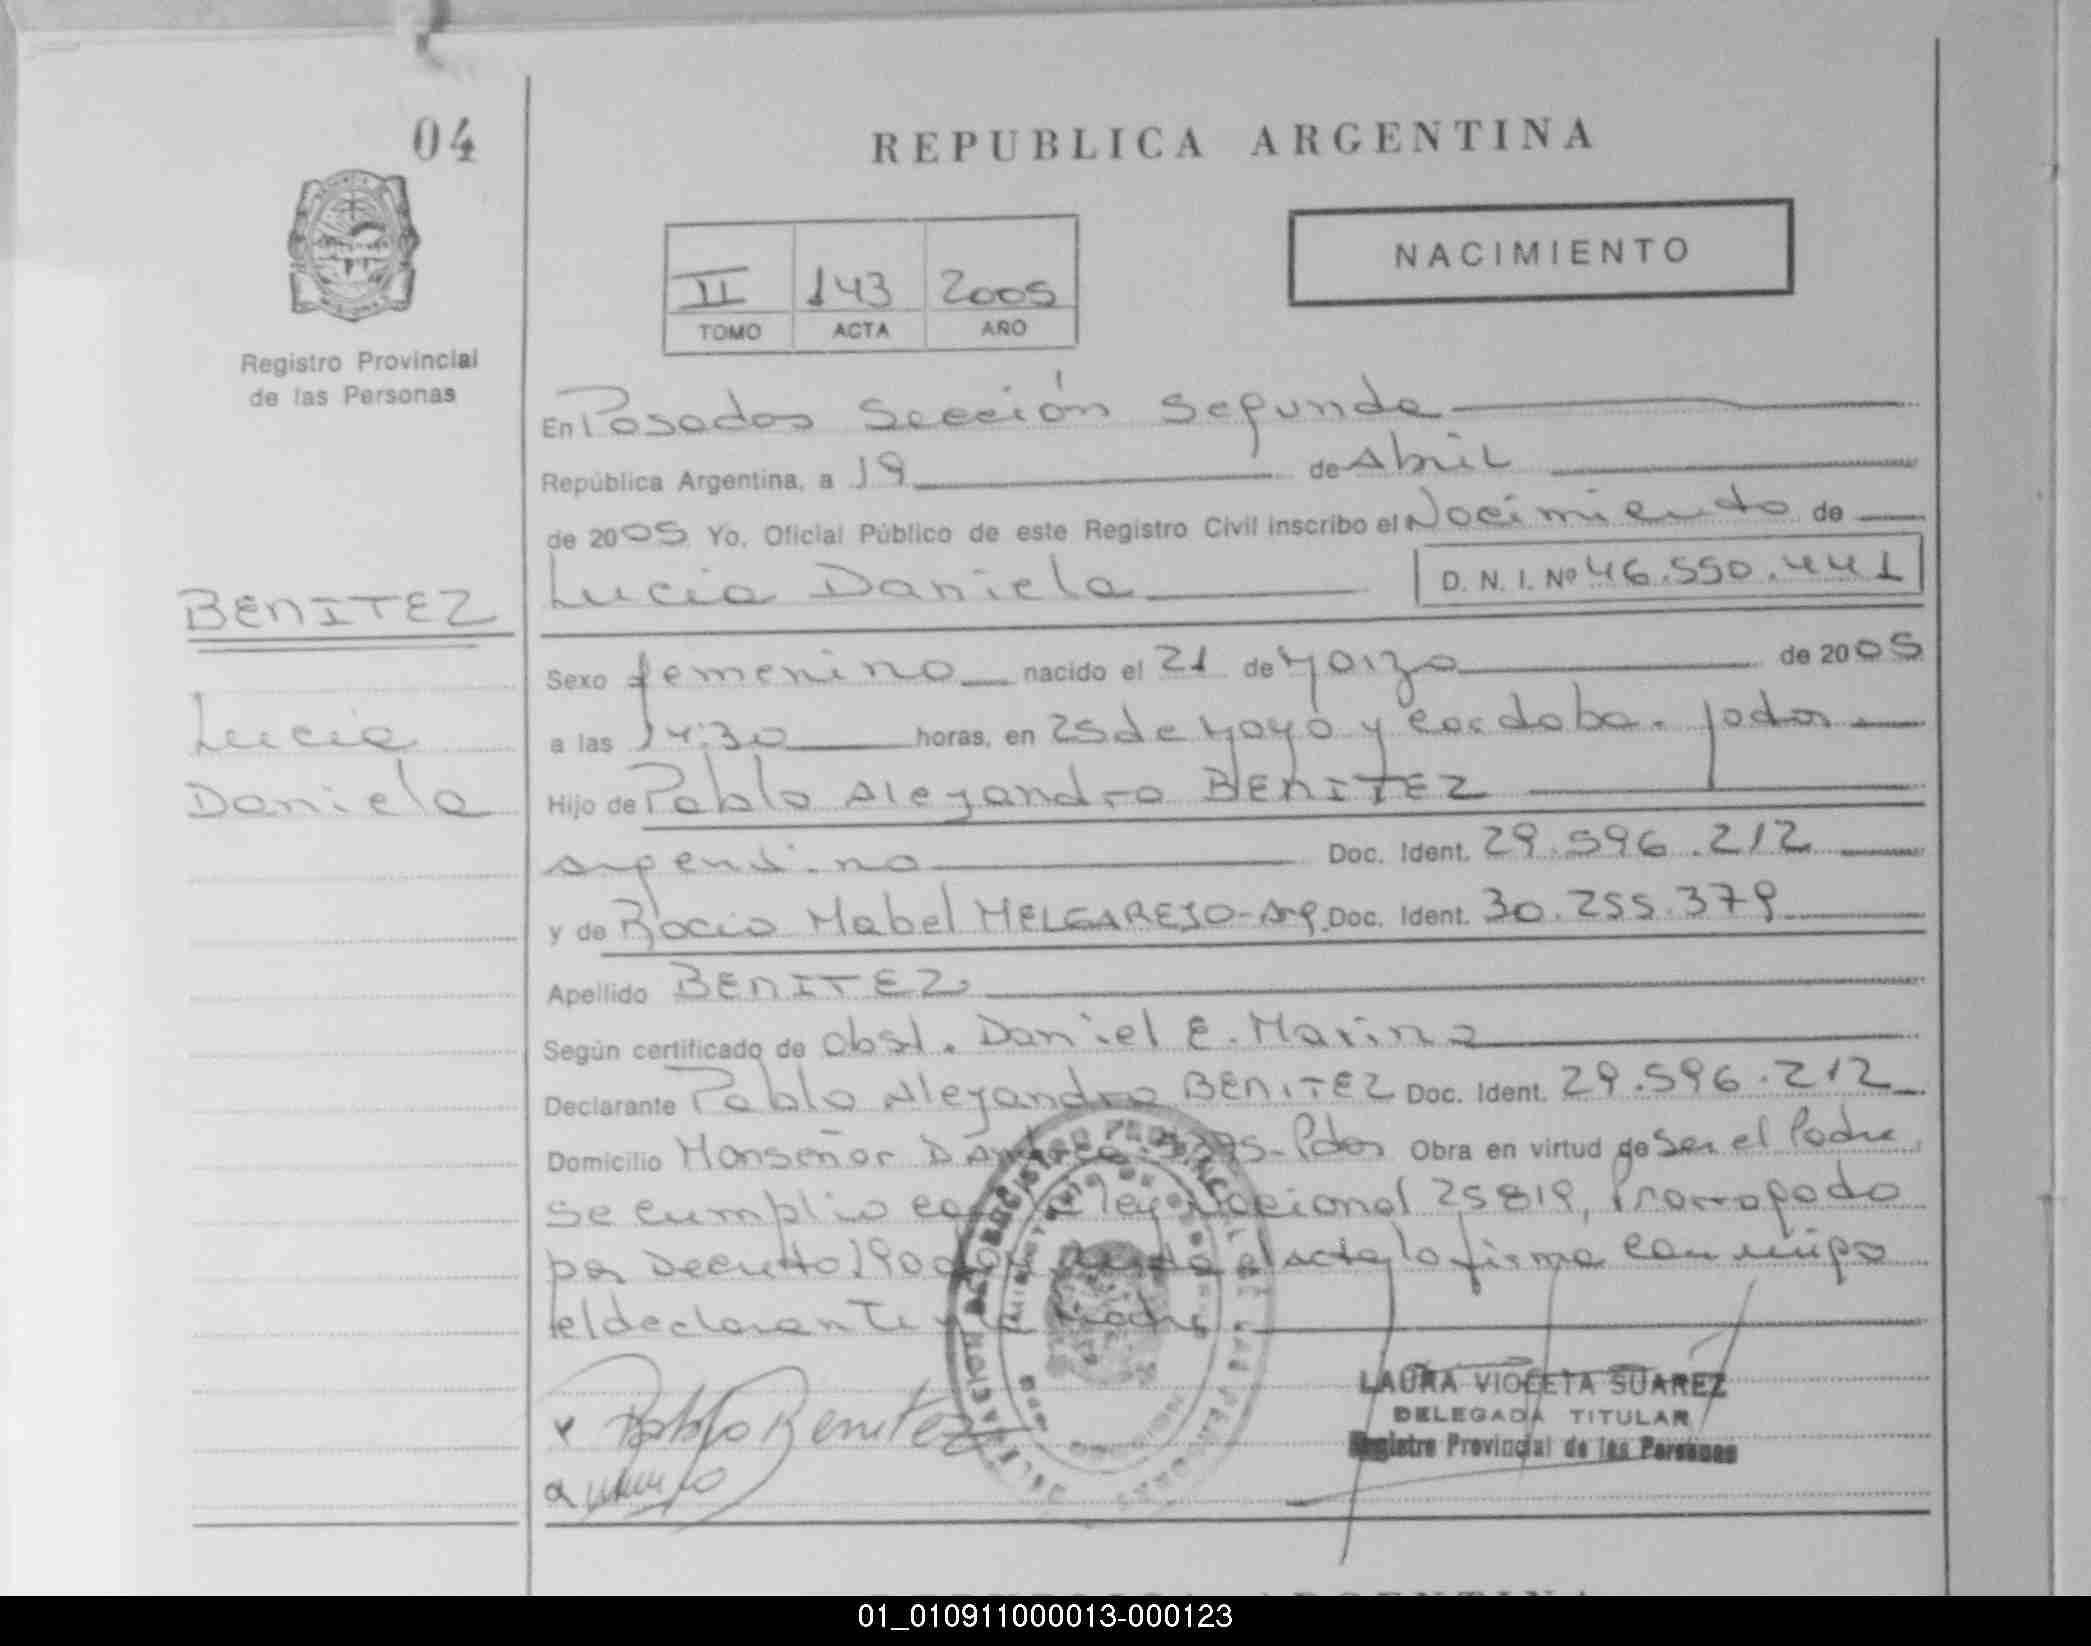 04
REPUBLICA ARGENTINA
NACIMIENTO
II 143 2005
TOMO ACTA AÑO
Registro Provincial
de las Personas
En Posadas Sección Segunda
República Argentina, a 19 de Abril
de 2005 Yo, Oficial Público de este Registro Civil inscribo el Nacimiento de
Lucia Daniela D. N. I. Nº 46.550.441
BENITEZ
Lucia
Daniela
Sexo femenino nacido el 21 de Marzo de 2005
a las 14:30 horas, en 25 de Mayo y Cordoba. Pdas
Hijo de Pablo Alejandro BENITEZ
argentino Doc. Ident. 29.596.212
y de Rocio Mabel MELGAREJO - Arg. Doc. Ident. 30.255.379
Apellido BENITEZ
Según certificado de Obst. Daniel E. Marina
Declarante Pablo Alejandro BENITEZ Doc. Ident. 29.596.212
Domicilio Monseñor - Pdas Obra en virtud de ser el Padre
se cumplio ley Nacional 25819, Prorrogado
por Decreto el acta, lo firma conmigo
el declarante y la madre.
Pablo Benitez
LAURA VIOLETA SUAREZ
DELEGADA TITULAR
Registro Provincial de las Personas
01_010911000013-000123